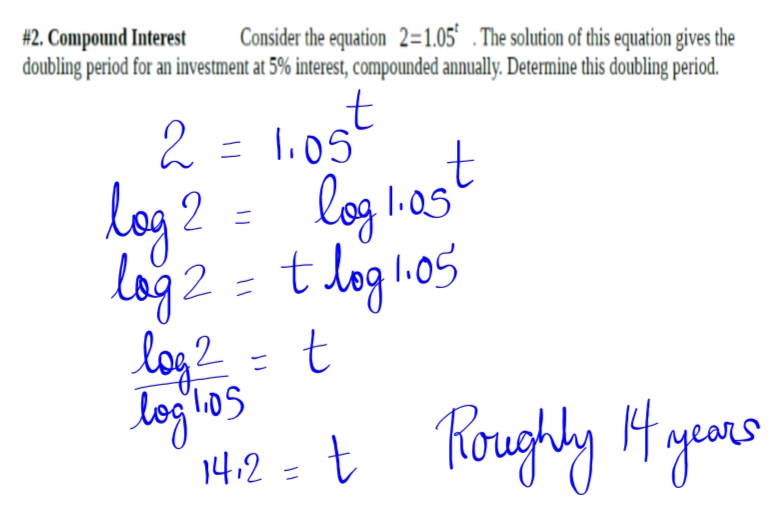 #2. Compound Interest Consider the equation 2=1.05^t . The solution of this equation gives the
doubling period for an investment at 5% interest, compounded annually. Determine this doubling period.
2 = 1.05^t
log 2 = log 1.05^t
log 2 = t log 1.05
log 2 / log 1.05 = t
14.2 = t Roughly 14 years